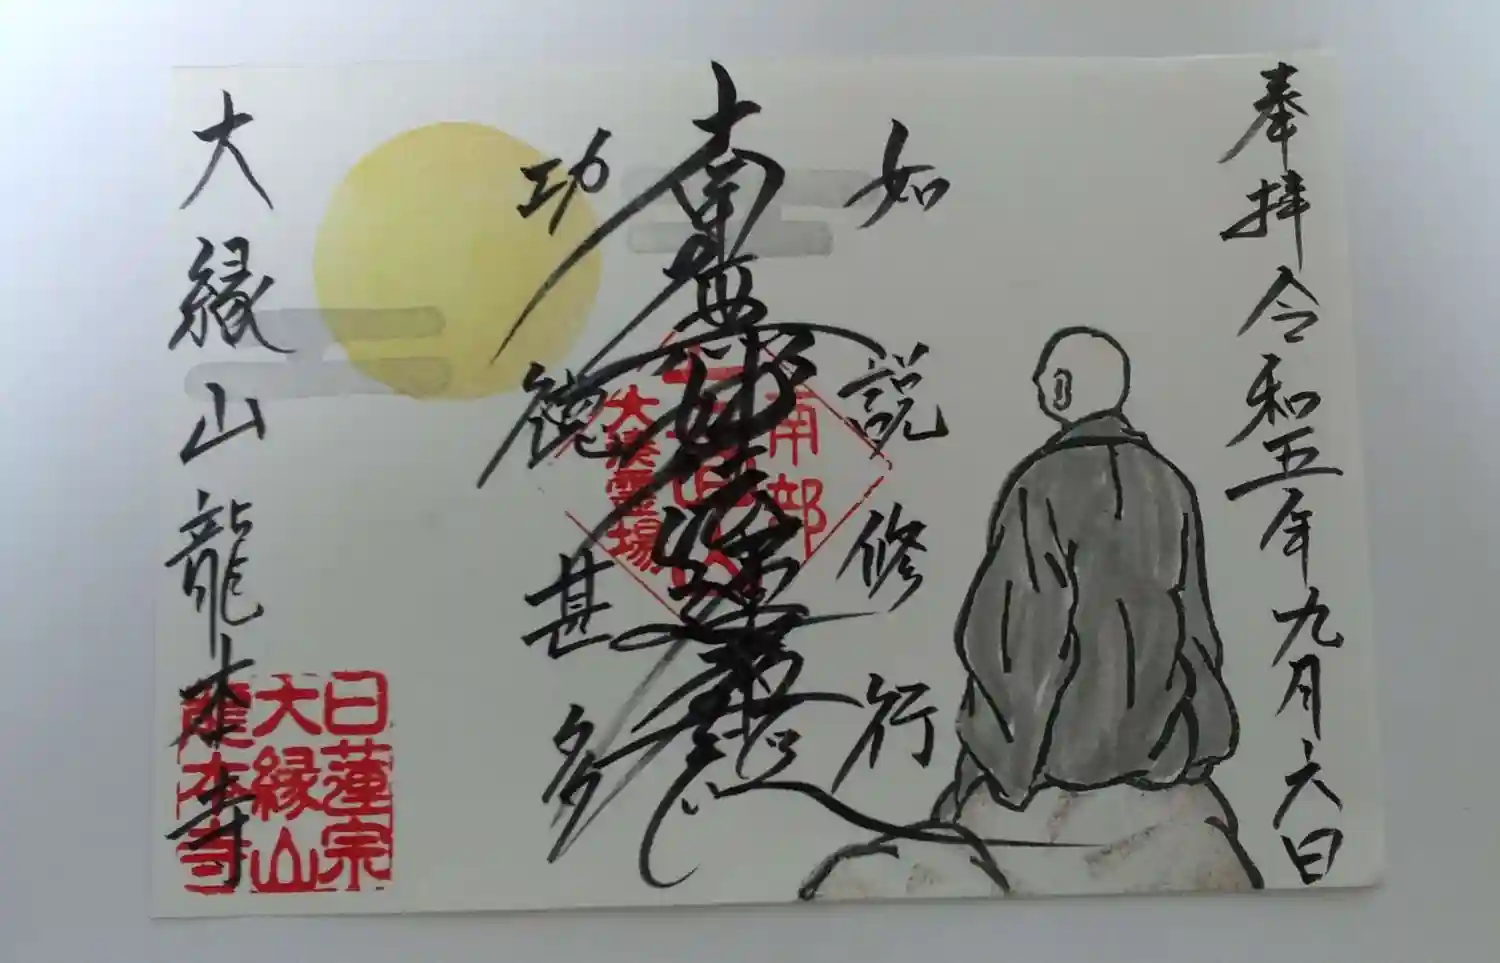 奉拝 令和五年九月六日
如説修行
南無妙法蓮華経
功徳甚多
大縁山龍本寺
南部
大湊霊場
日蓮宗
大縁山
龍本寺